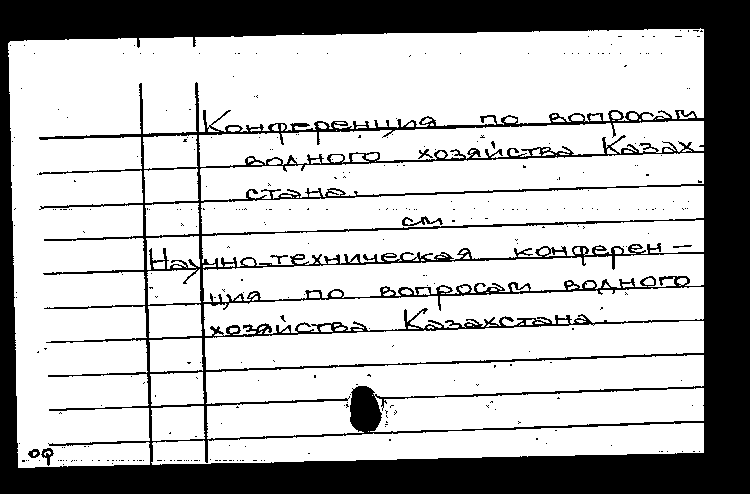 Конференция по вопросам
водного хозяйства Казах-
стана.
см.
Научно-техническая конферен-
ция по вопросам водного
хозяйства Казахстана.
оф